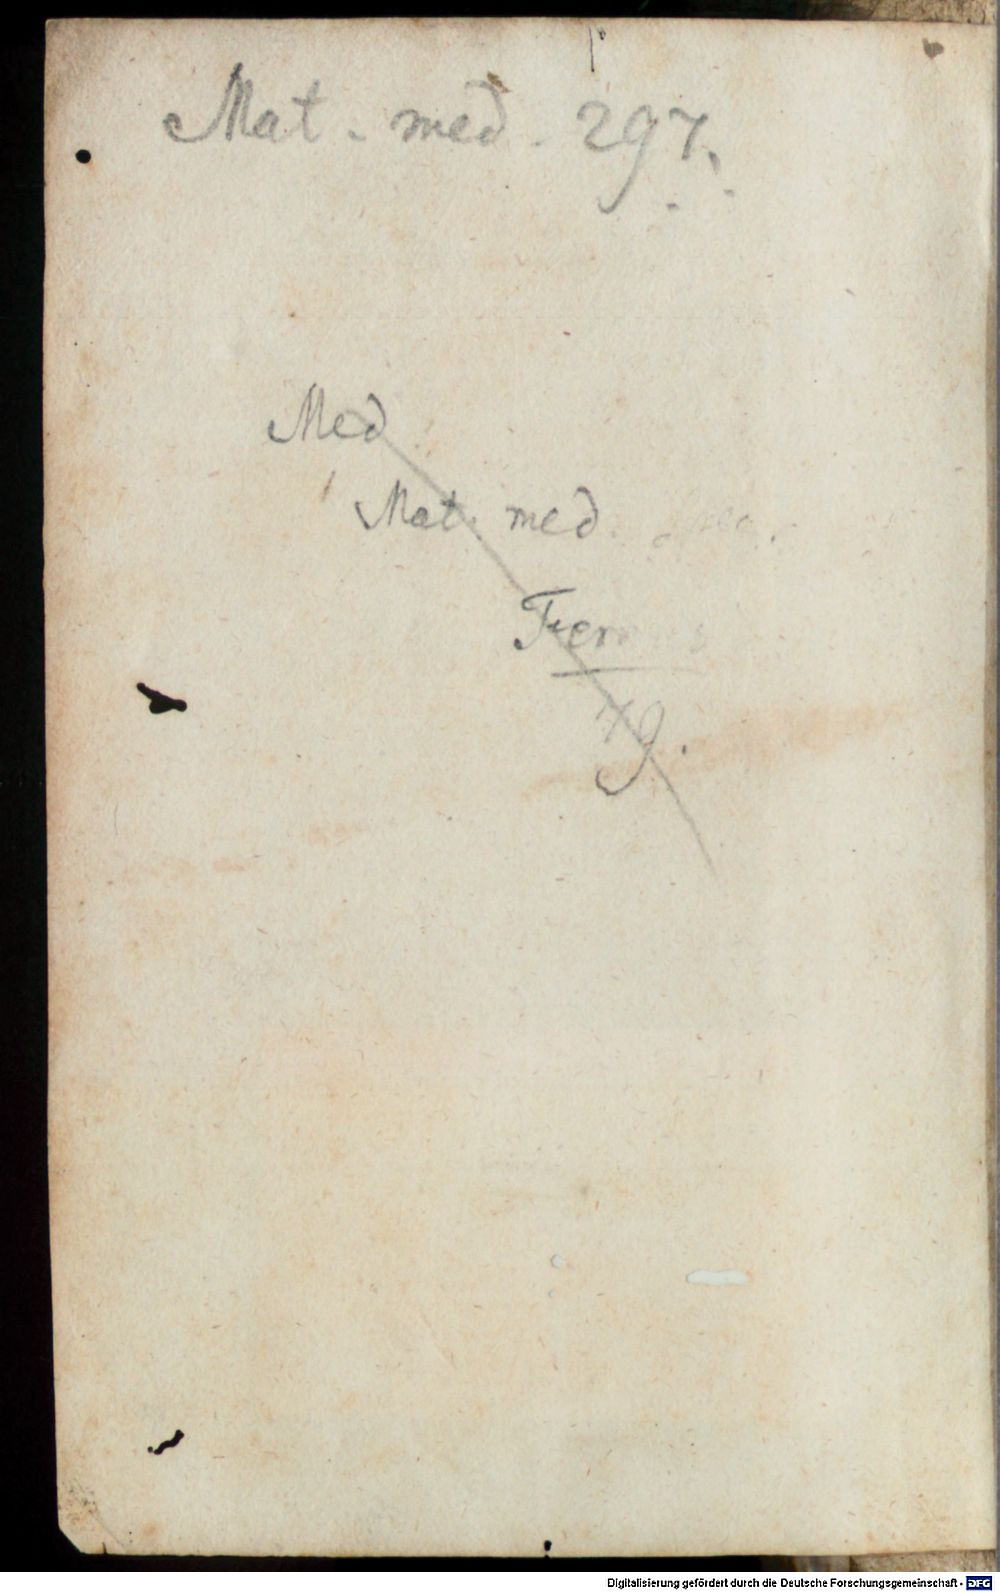 Mat. med. 297.
Med
Mat. med.
79.
Digitalisierung gefördert durch die Deutsche Forschungsgemeinschaft - DFG